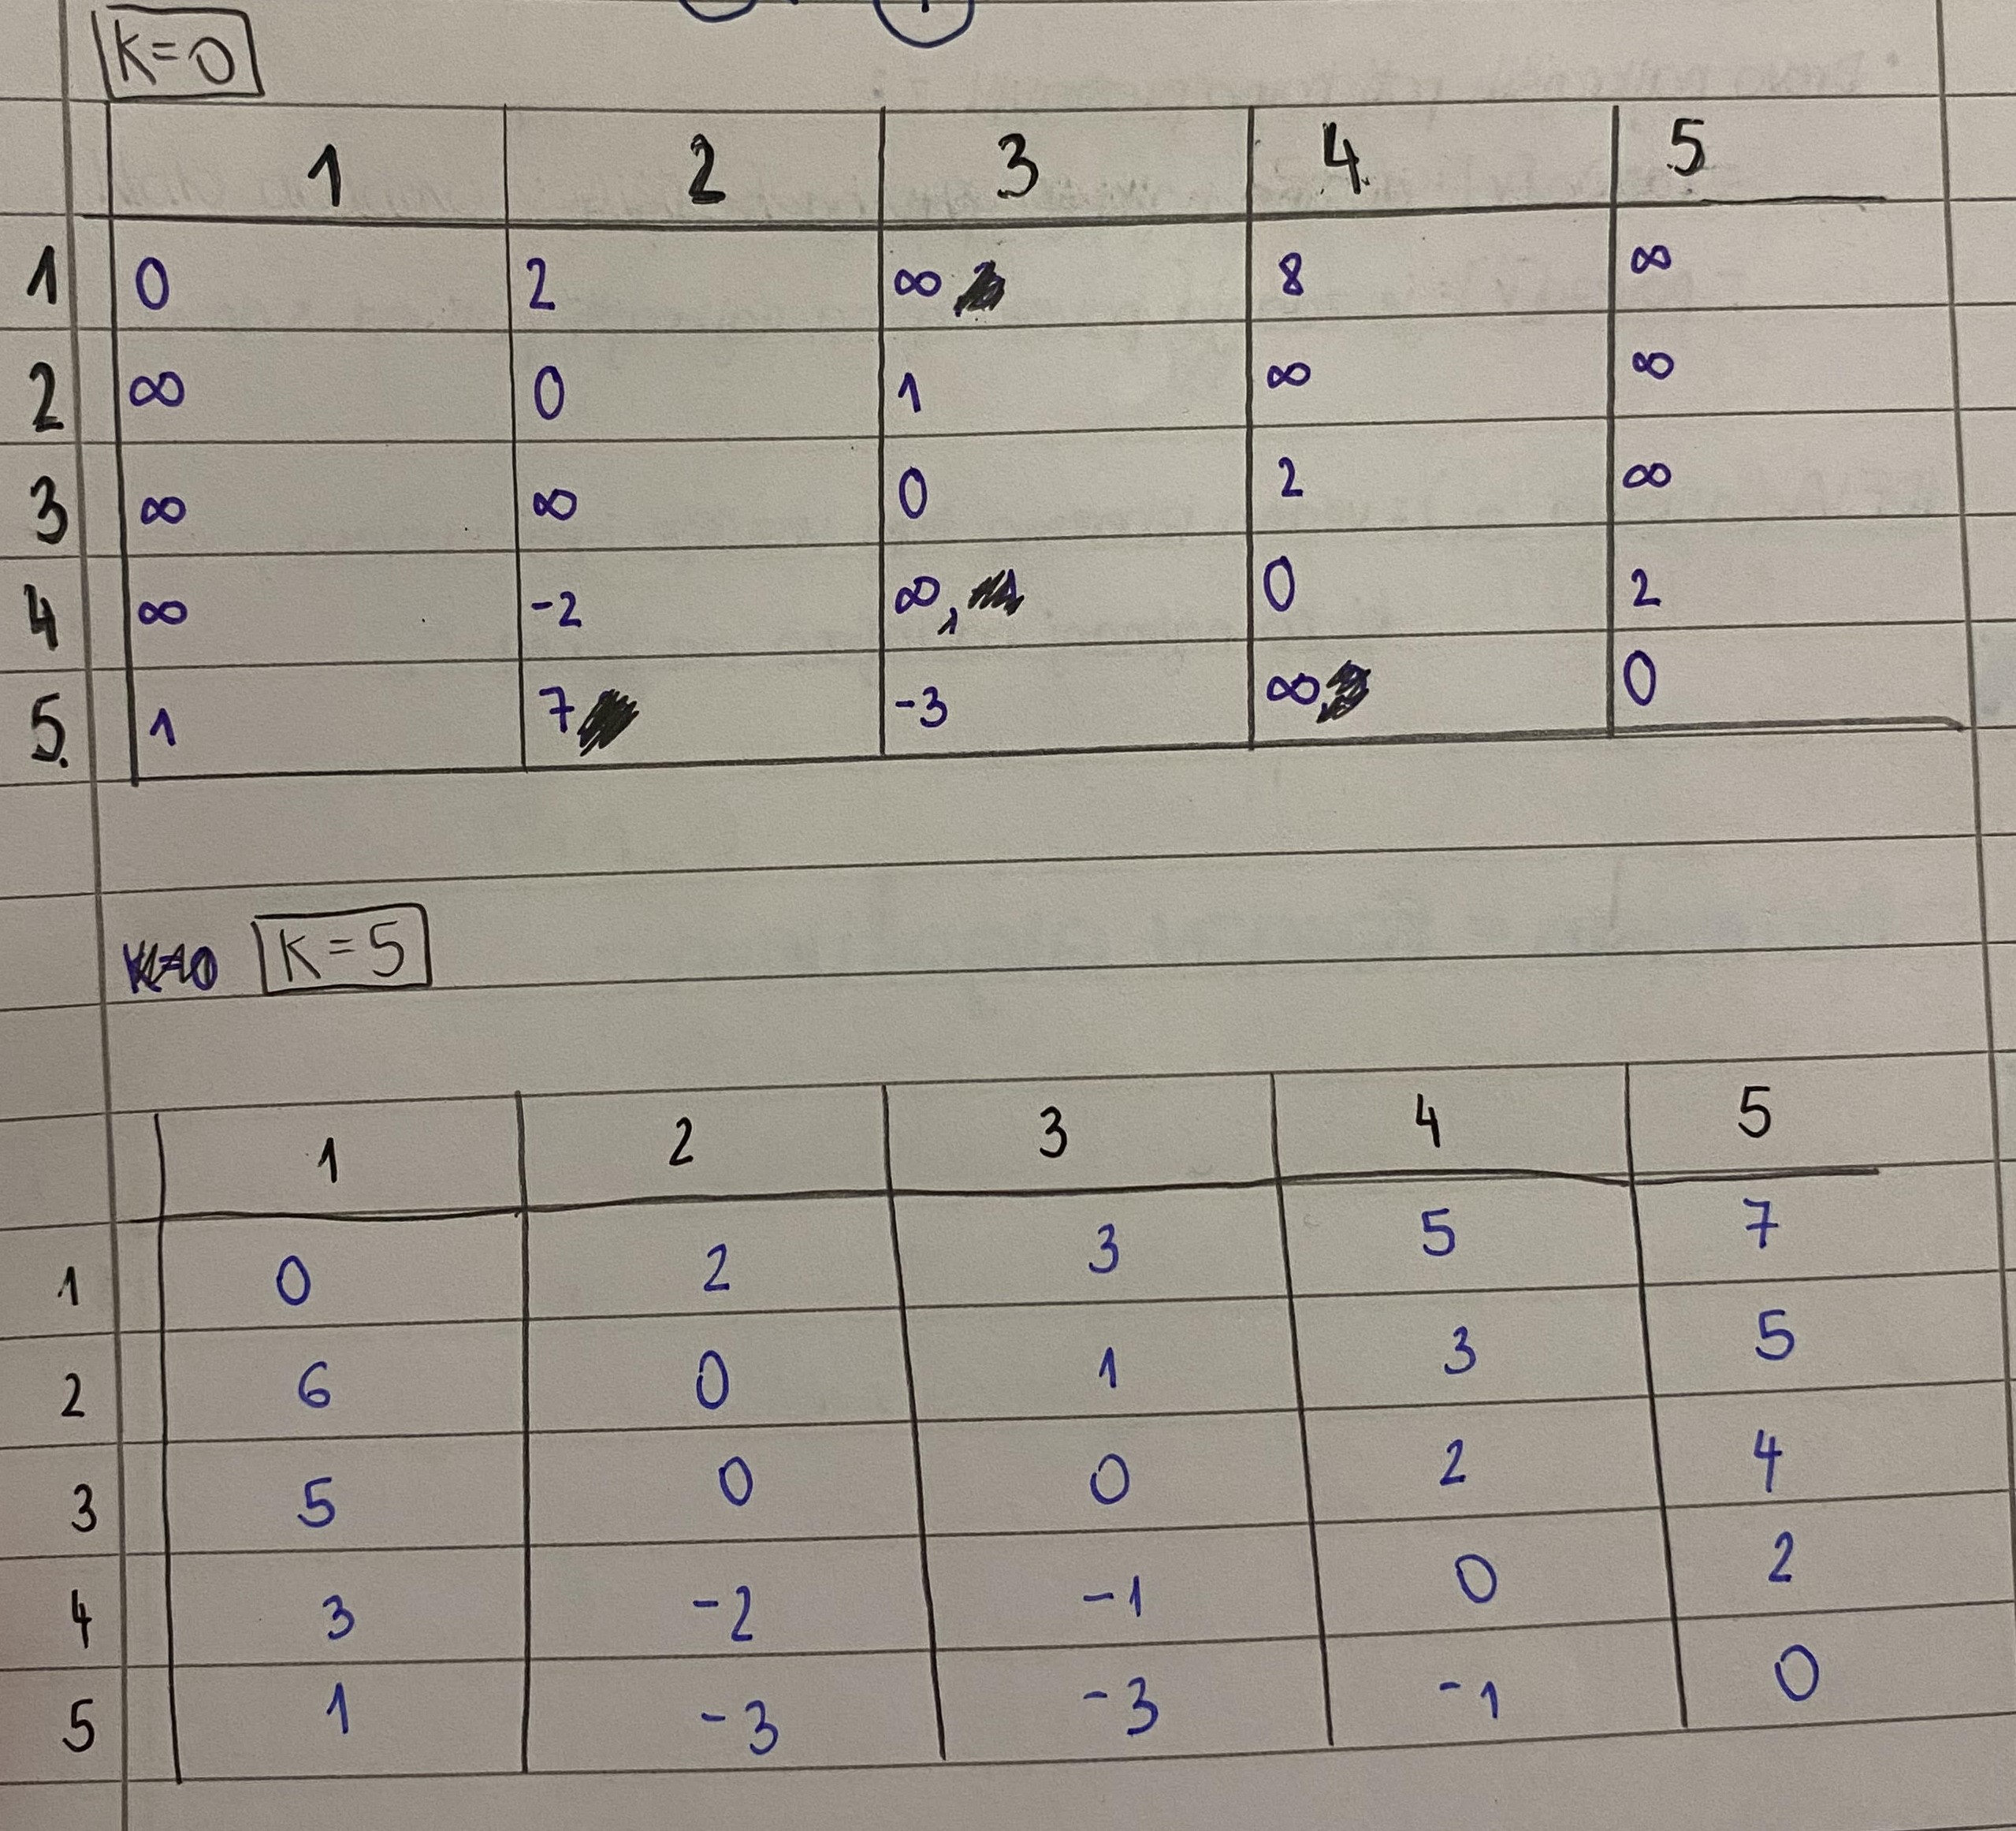 K=0
1 2 3 4 5
1 0 2 ∞ 8 ∞
2 ∞ 0 1 ∞ ∞
3 ∞ ∞ 0 2 ∞
4 ∞ -2 ∞, 0 2
5. 1 7 -3 ∞ 0
K=0 K=5
1 2 3 4 5
1 0 2 3 5 7
2 6 0 1 3 5
3 5 0 0 2 4
4 3 -2 -1 0 2
5 1 -3 -3 -1 0